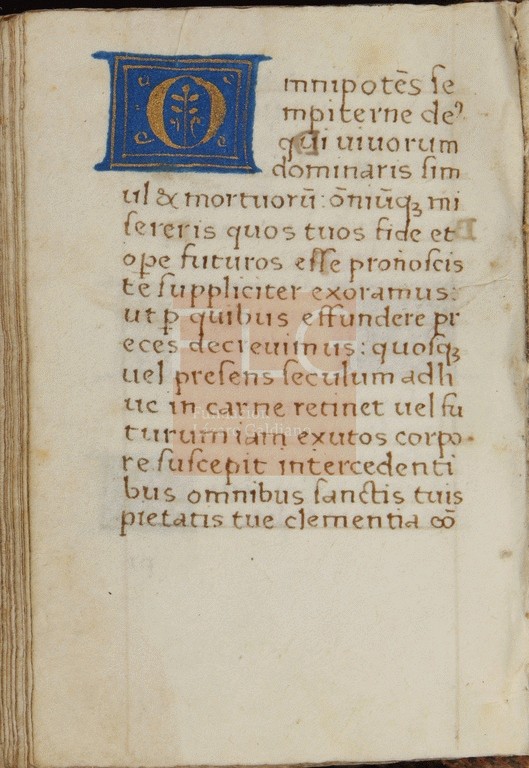 Omnipotēs se
mpiterne deꝰ
qui uiuorum
dominaris sim
ul & mortuorū: ōniūqꝫ mi
sereris quos tuos fide et
ope futuros esse pronoscis
te suppliciter exoramus:
ut ꝑ quibus effundere pr
eces decreuimus: quosqꝫ
uel presens seculum adh
uc in carne retinet uel fu
turum iam exutos corpo
re suscepit intercedenti
bus omnibus sanctis tuis
pietatis tue clementia oō
FLG
Fundación
Lázaro Galdiano